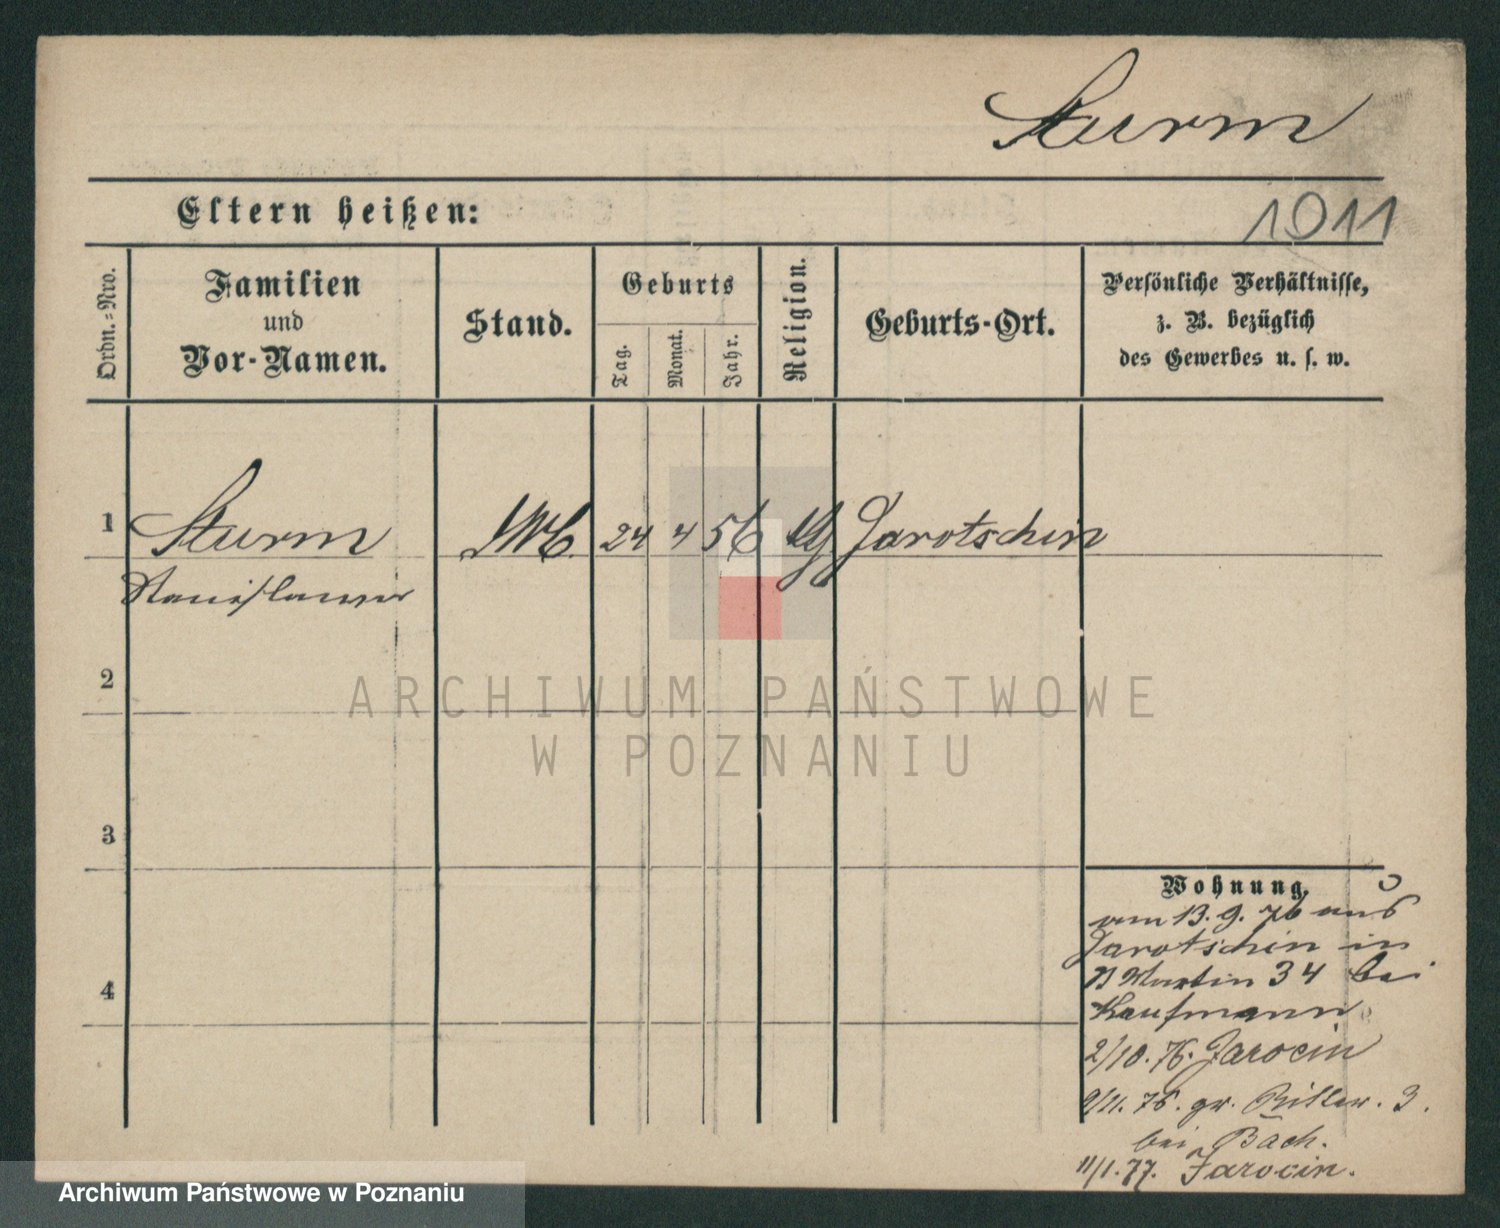 Sturm
Eltern heißen:
1911
Ordn.-Nro.
Familien
und
Vor-Namen.
Stand.
Geburts
Tag.
Monat.
Jahr.
Religion.
Geburts-Ort.
Persönliche Verhältnisse,
z. B. bezüglich
des Gewerbes u. s. w.
1
Sturm
24 4 56
Jarotschin
Stanislawa
2
3
4
Wohnung.
am 13. 9. 76 aus
Jarotschin in
Martin 34 bei
Kaufmann
2/10. 76. Jarocin
9/11. 76. gr. Ritter. 3.
bei Bach.
11/1. 77. Jarocin.
ARCHIWUM PAŃSTWOWE
W POZNANIU
Archiwum Państwowe w Poznaniu